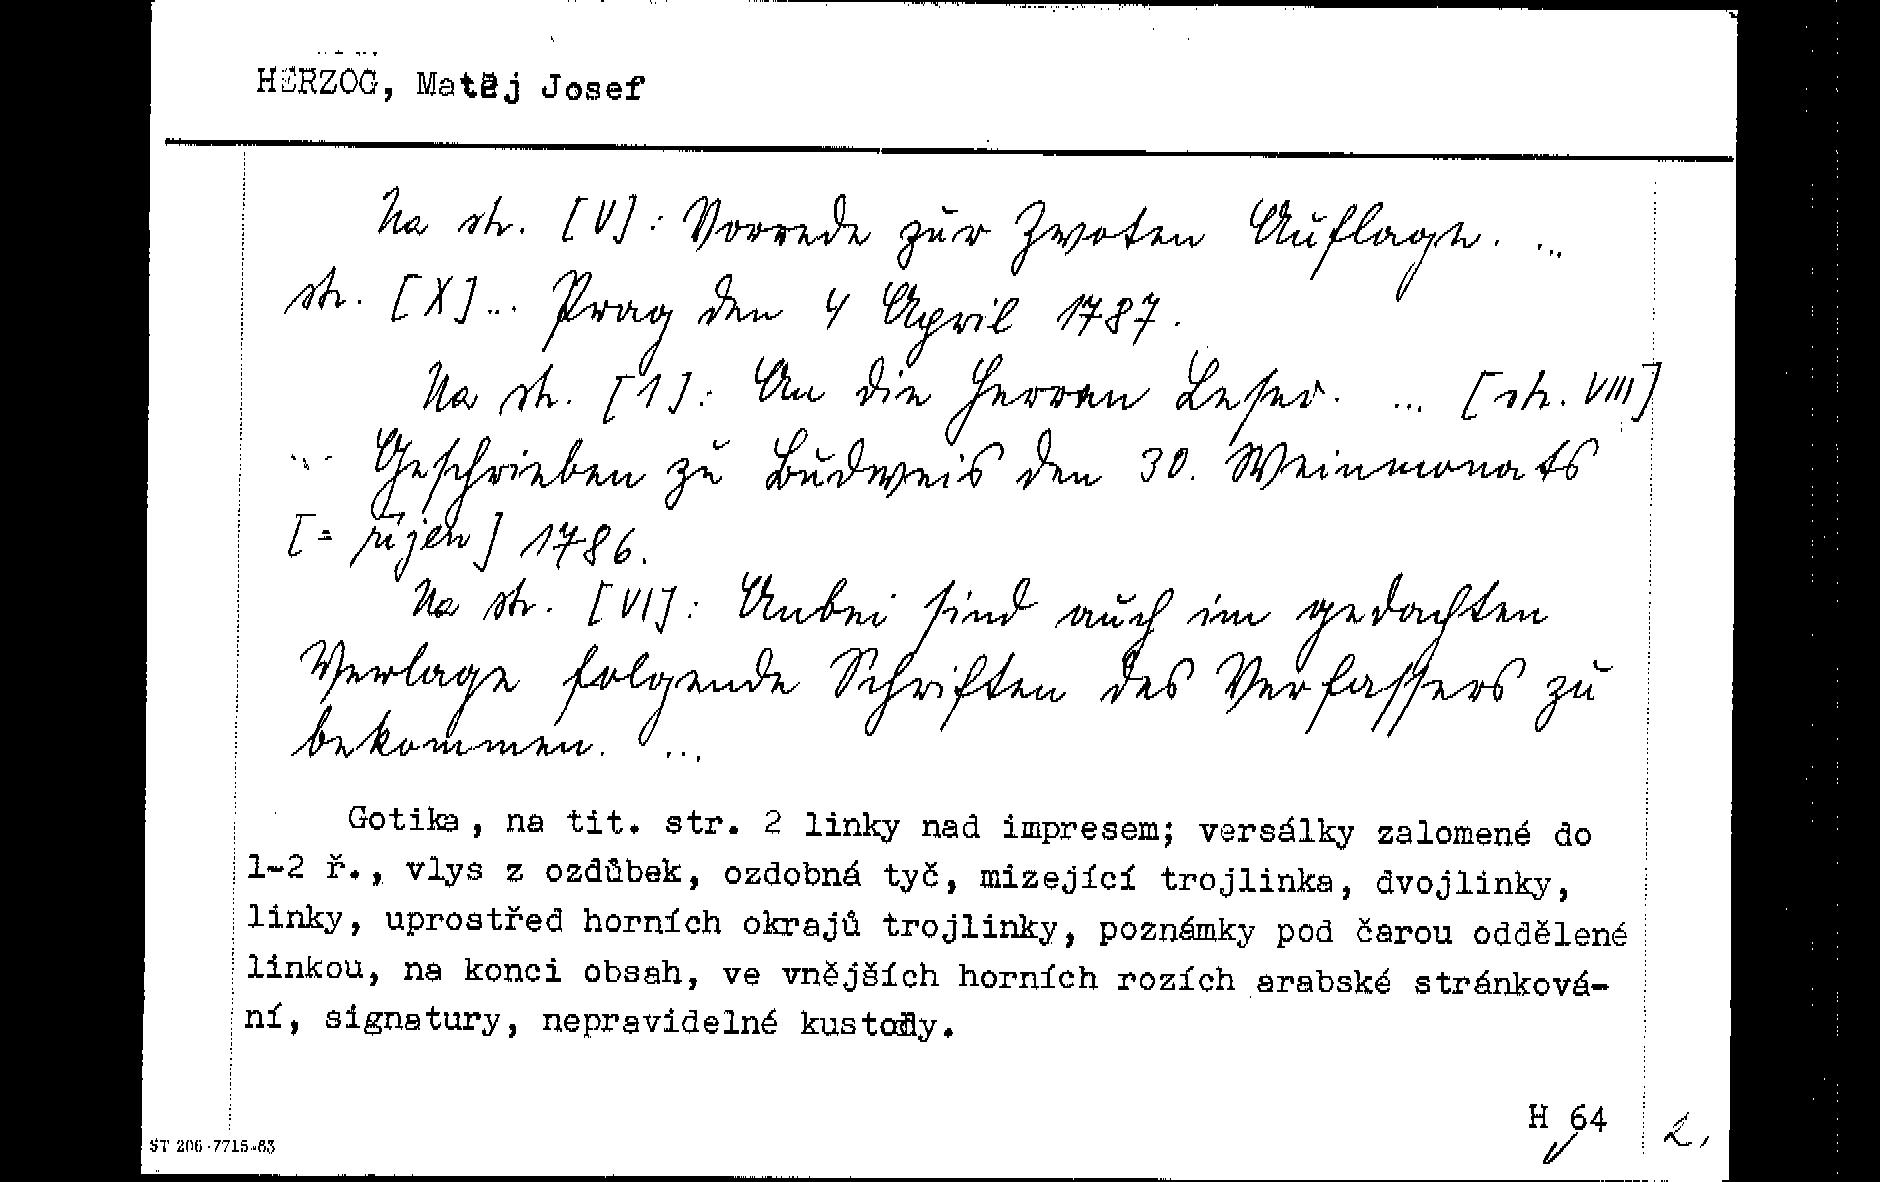 HERZOG, Matěj Josef
Na str. [V]: Vorrede zur Zwoten Auflage. ...
str. [X]... Prag den 4 April 1787.
Na str. [1]: An die Herren Leser. ... [str. VIII]
... Geschrieben zu Budweis den 30. Weinmonats
[= říjen] 1786.
Na str. [VI]: Anbei sind auch im gedachten
Verlage folgende Schriften des Verfassers zu
bekommen. ...
Gotika, na tit. str. 2 linky nad impresem; versálky zalomené do
1-2 ř., vlys z ozdůbek, ozdobná tyč, mizející trojlinka, dvojlinky,
linky, uprostřed horních okrajů trojlinky, poznámky pod čarou oddělené
linkou, na konci obsah, ve vnějších horních rozích arabské stránková-
ní, signatury, nepravidelné kustody.
H 64
2.
ST 206-7715-83